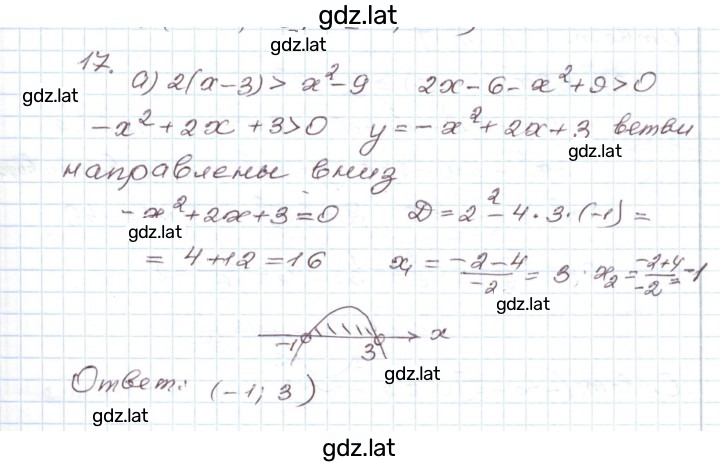 gdz.lat
gdz.lat
17.
а) 2(x-3) > x²-9   2x-6-x²+9>0
gdz.lat
-x²+2x+3>0   y=-x²+2x+3 ветви
gdz.lat
направлены вниз
-x²+2x+3=0   D=2²-4·3·(-1)=
gdz.lat
= 4+12=16   x₁ = (-2-4)/(-2) = 3; x₂ = (-2+4)/(-2) = -1
gdz.lat
-1 3 x
gdz.lat
Ответ: (-1; 3)
gdz.lat
gdz.lat